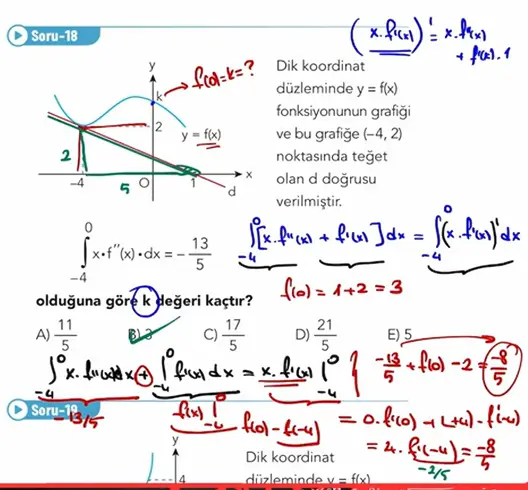 Soru-18
(x.f'(x))' = x.f''(x) + f'(x).1
f(0)=k=?
y
k
2
y = f(x)
2
-4
5
O
1
x
d
Dik koordinat
düzleminde y = f(x)
fonksiyonunun grafiği
ve bu grafiğe (–4, 2)
noktasında teğet
olan d doğrusu
verilmiştir.
∫₋₄⁰ x•f''(x)•dx = – 13/5
∫₋₄⁰ [x.f''(x) + f'(x)]dx = ∫₋₄⁰ (x.f'(x))' dx
olduğuna göre k değeri kaçtır?
f(0) = 1+2 = 3
A) 11/5 B) 3 C) 17/5 D) 21/5 E) 5
∫₋₄⁰ x.f''(x)dx + ∫₋₄⁰ f'(x)dx = x.f'(x) |₋₄⁰
-13/5 + f(0) - 2 = -8/5
-13/5
f(x) |₋₄⁰
f(0) - f(-4)
= 0.f'(0) - (-4).f'(-4)
= 4.f'(-4) = -8/5
-2/5
Soru-19
y
4
Dik koordinat
düzleminde y = f(x)